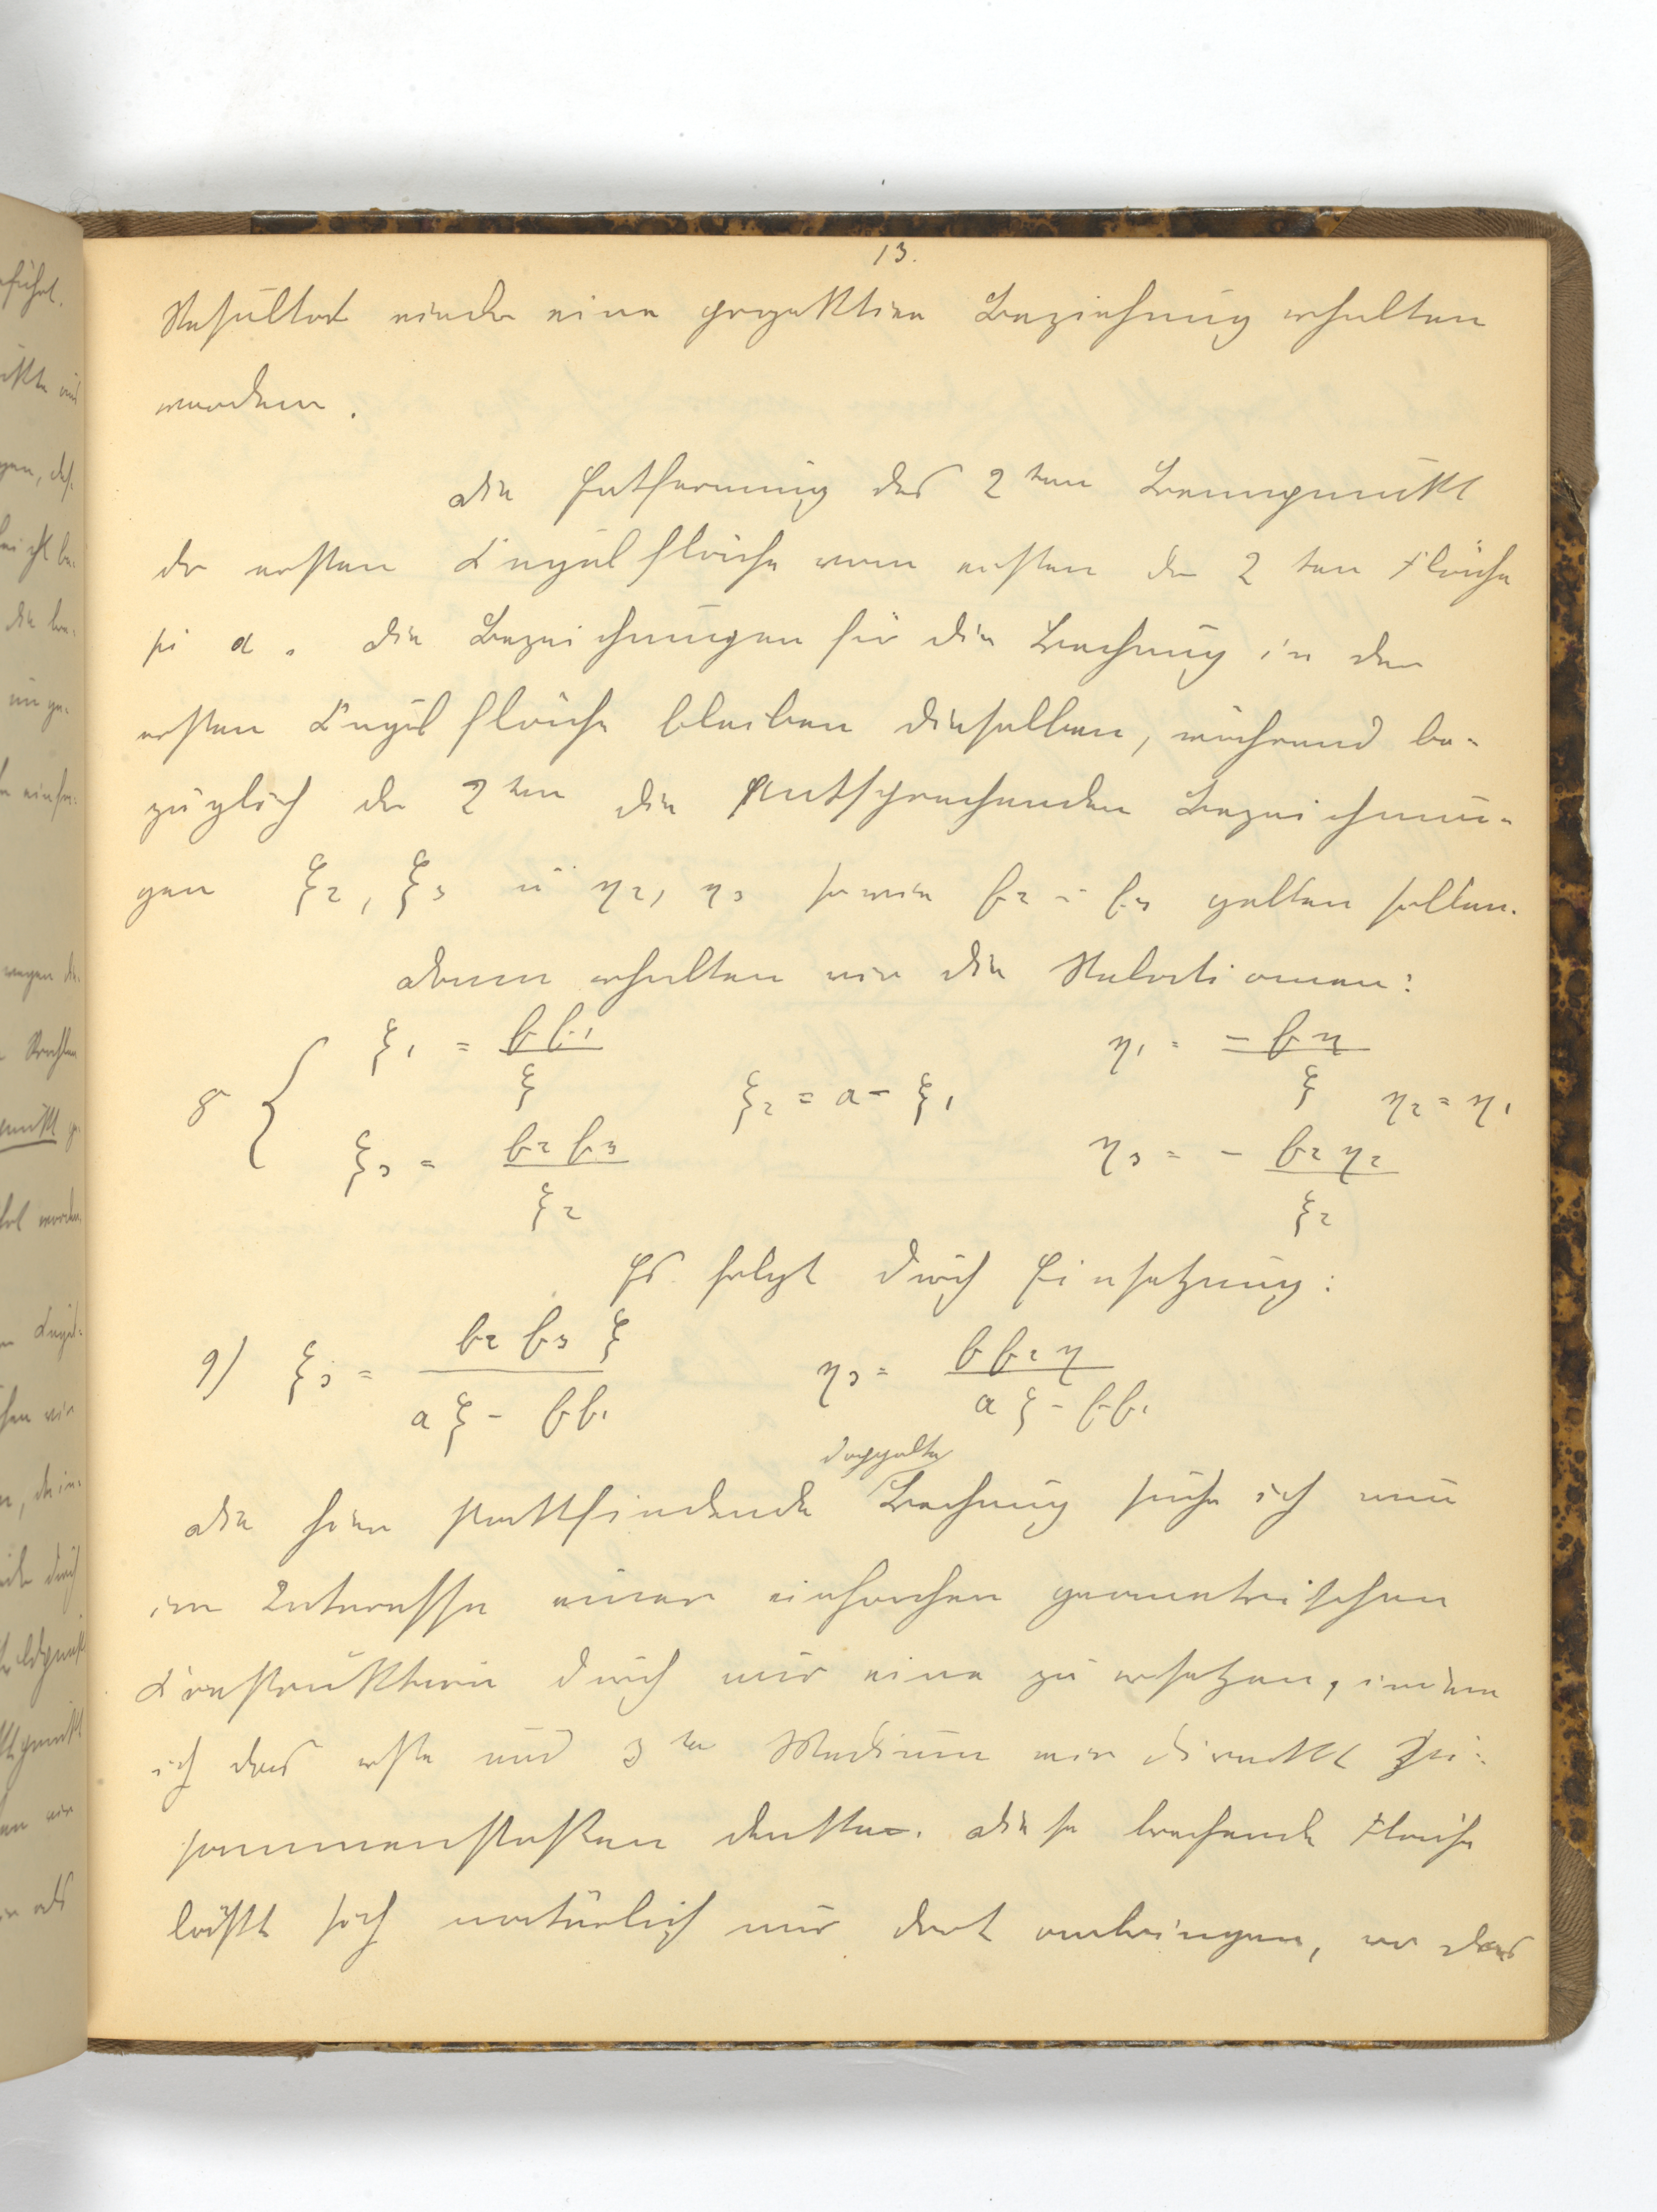 13.
Resultat wieder eine projektive Beziehung erhalten
werden.
Die Entfernung des 2ten Brennpunkt
der ersten Kugelfläche vom ersten der 2ten Fläche
sei a. Die Bezeichnungen für die Brechung in der
ersten Kugelfläche bleiben dieselben, während be-
züglich der 2ten die entsprechenden Bezeichnun-
gen ξ2, ξ3 u η2, η3 sowie f2 u f3 gelten sollen.
Dann erhalten wir die Relationen:
8 { ξ1 = f f1 / ξ   ξ2 = a - ξ1   η1 = - f η / ξ   η2 = η1
ξ3 = f2 f3 / ξ2   η3 = - f2 η2 / ξ2
Es folgt durch Einsetzung:
9) ξ3 = f2 f3 ξ / a ξ - f f1   η3 = f f2 η / a ξ - f f1
doppelte
Die hier stattfindende Brechung suche ich nun
im Interesse einer einfachen geometrischen
Konstruktion durch nur eine zu ersetzen, indem
ich das erste und 3te Medium mir direkt zu-
sammenstoßen denke. Diese brechende Fläche
läßt sich natürlich nur dort anbringen, wo das